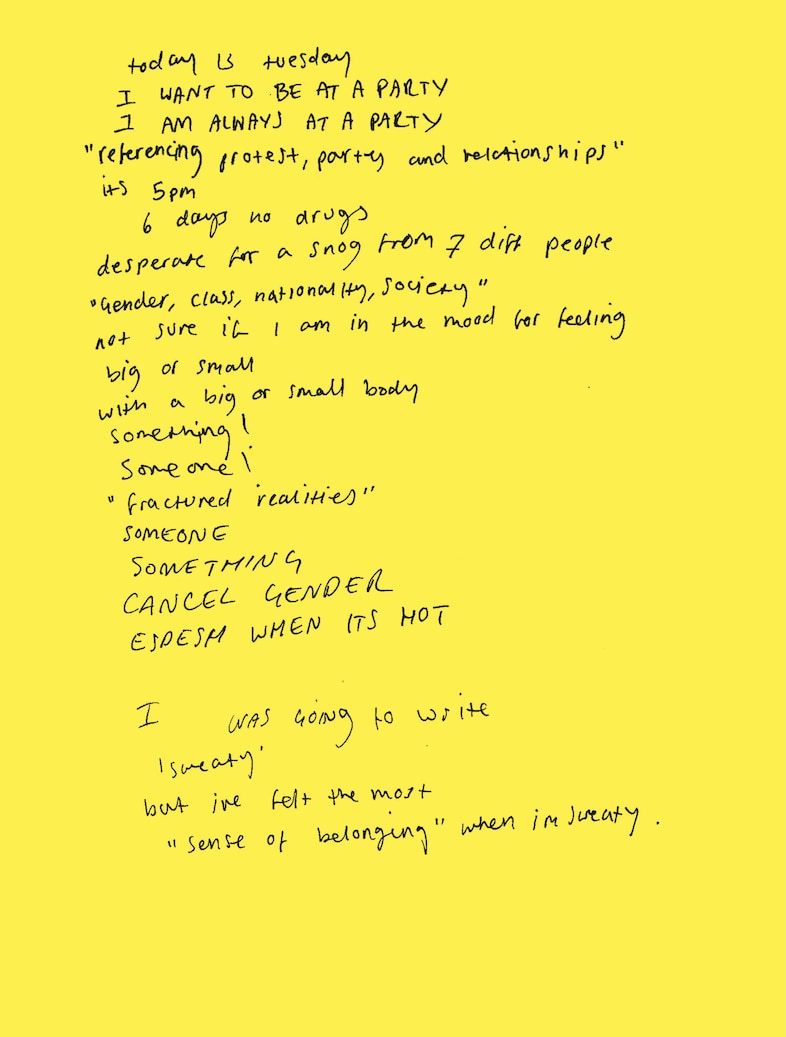 today is tuesday
I WANT TO BE AT A PARTY
I AM ALWAYS AT A PARTY
"referencing protest, party and relationships"
its 5pm
6 days no drugs
desperate for a snog from 7 diff people
"Gender, class, nationality, society"
not sure if I am in the mood for feeling
big or small
with a big or small body
something!
Someone!
"fractured realities"
SOMEONE
SOMETHING
CANCEL GENDER
WHEN ITS HOT
I WAS GOING to write
'sweaty'
but ive felt the most
"sense of belonging" when im sweaty.